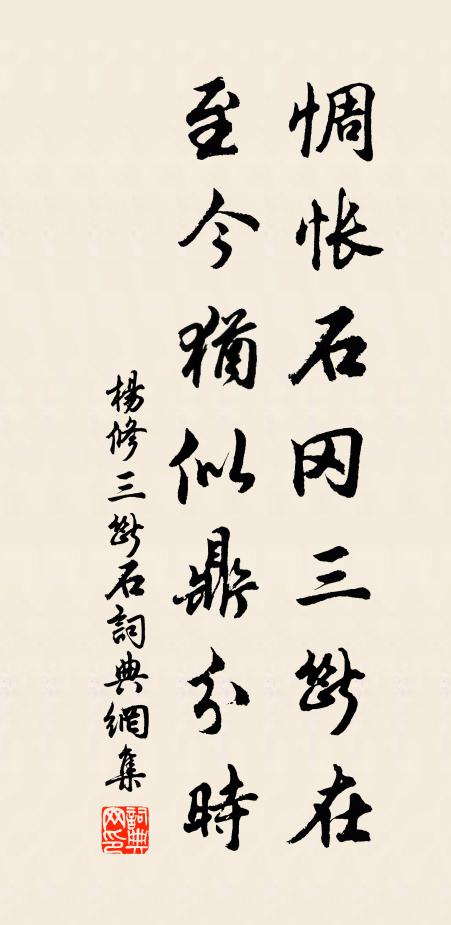 惆悵石冈三斷在
至今猶似鼎分時
楊修三斷石詞典網集
詞典網印